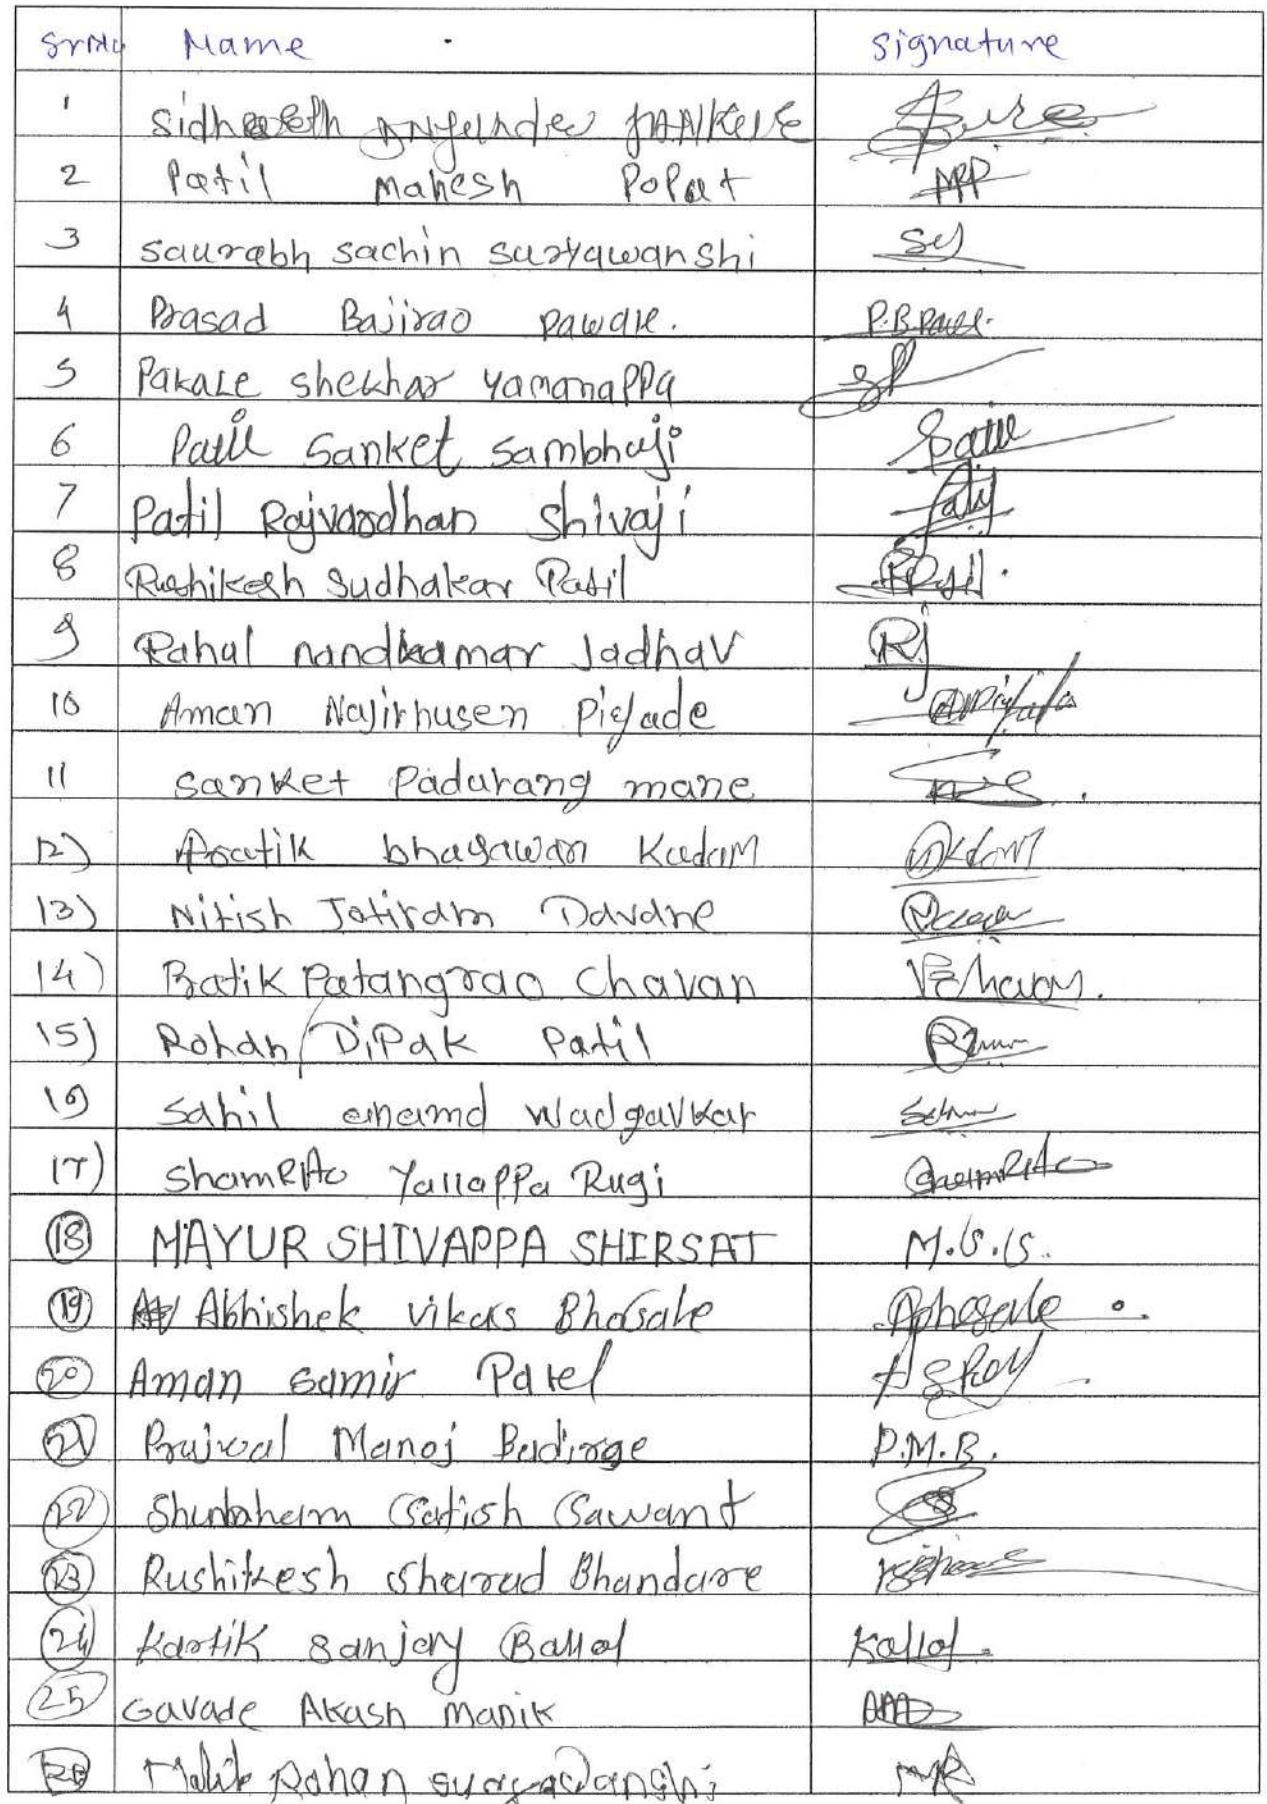 Sr No Name Signature
1 Sidharth JANKERE
2 Patil Mahesh Popat MPP
3 Saurabh Sachin Suryawanshi
4 Prasad Bajirao Pawale. P.B.Pawale.
5 Pakale Shekhar Yamanappa
6 Patil Sanket Sambhaji Patil
7 Patil Rajvardhan Shivaji
8 Rushikesh Sudhakar Patil
9 Rahul nandkumar Jadhav RJ
10 Aman Najirhusen Pirjade
11 Sanket Padurang mane
12) Pratik bhagawan Kadam
13) Nitish Jotiram Davane
14) Pratik Patangrao Chavan
15) Rohan Dipak Patil
16) Sahil anand Wadgavkar
17) ShamRito Yallappa Rugi ShamRito
18 MAYUR SHIVAPPA SHIRSAT M.S.S.
19 Abhishek Vikas Bhosale ABhosale
20 Aman Samir Patel
21 Prajwal Manoj Badirge P.M.B.
22 Shubham Satish Sawant
23 Rushikesh Sharad Bhandare
24 Kartik Sanjay Ballol Kallol.
25 Gavade Akash Manik
26 Rohan MR